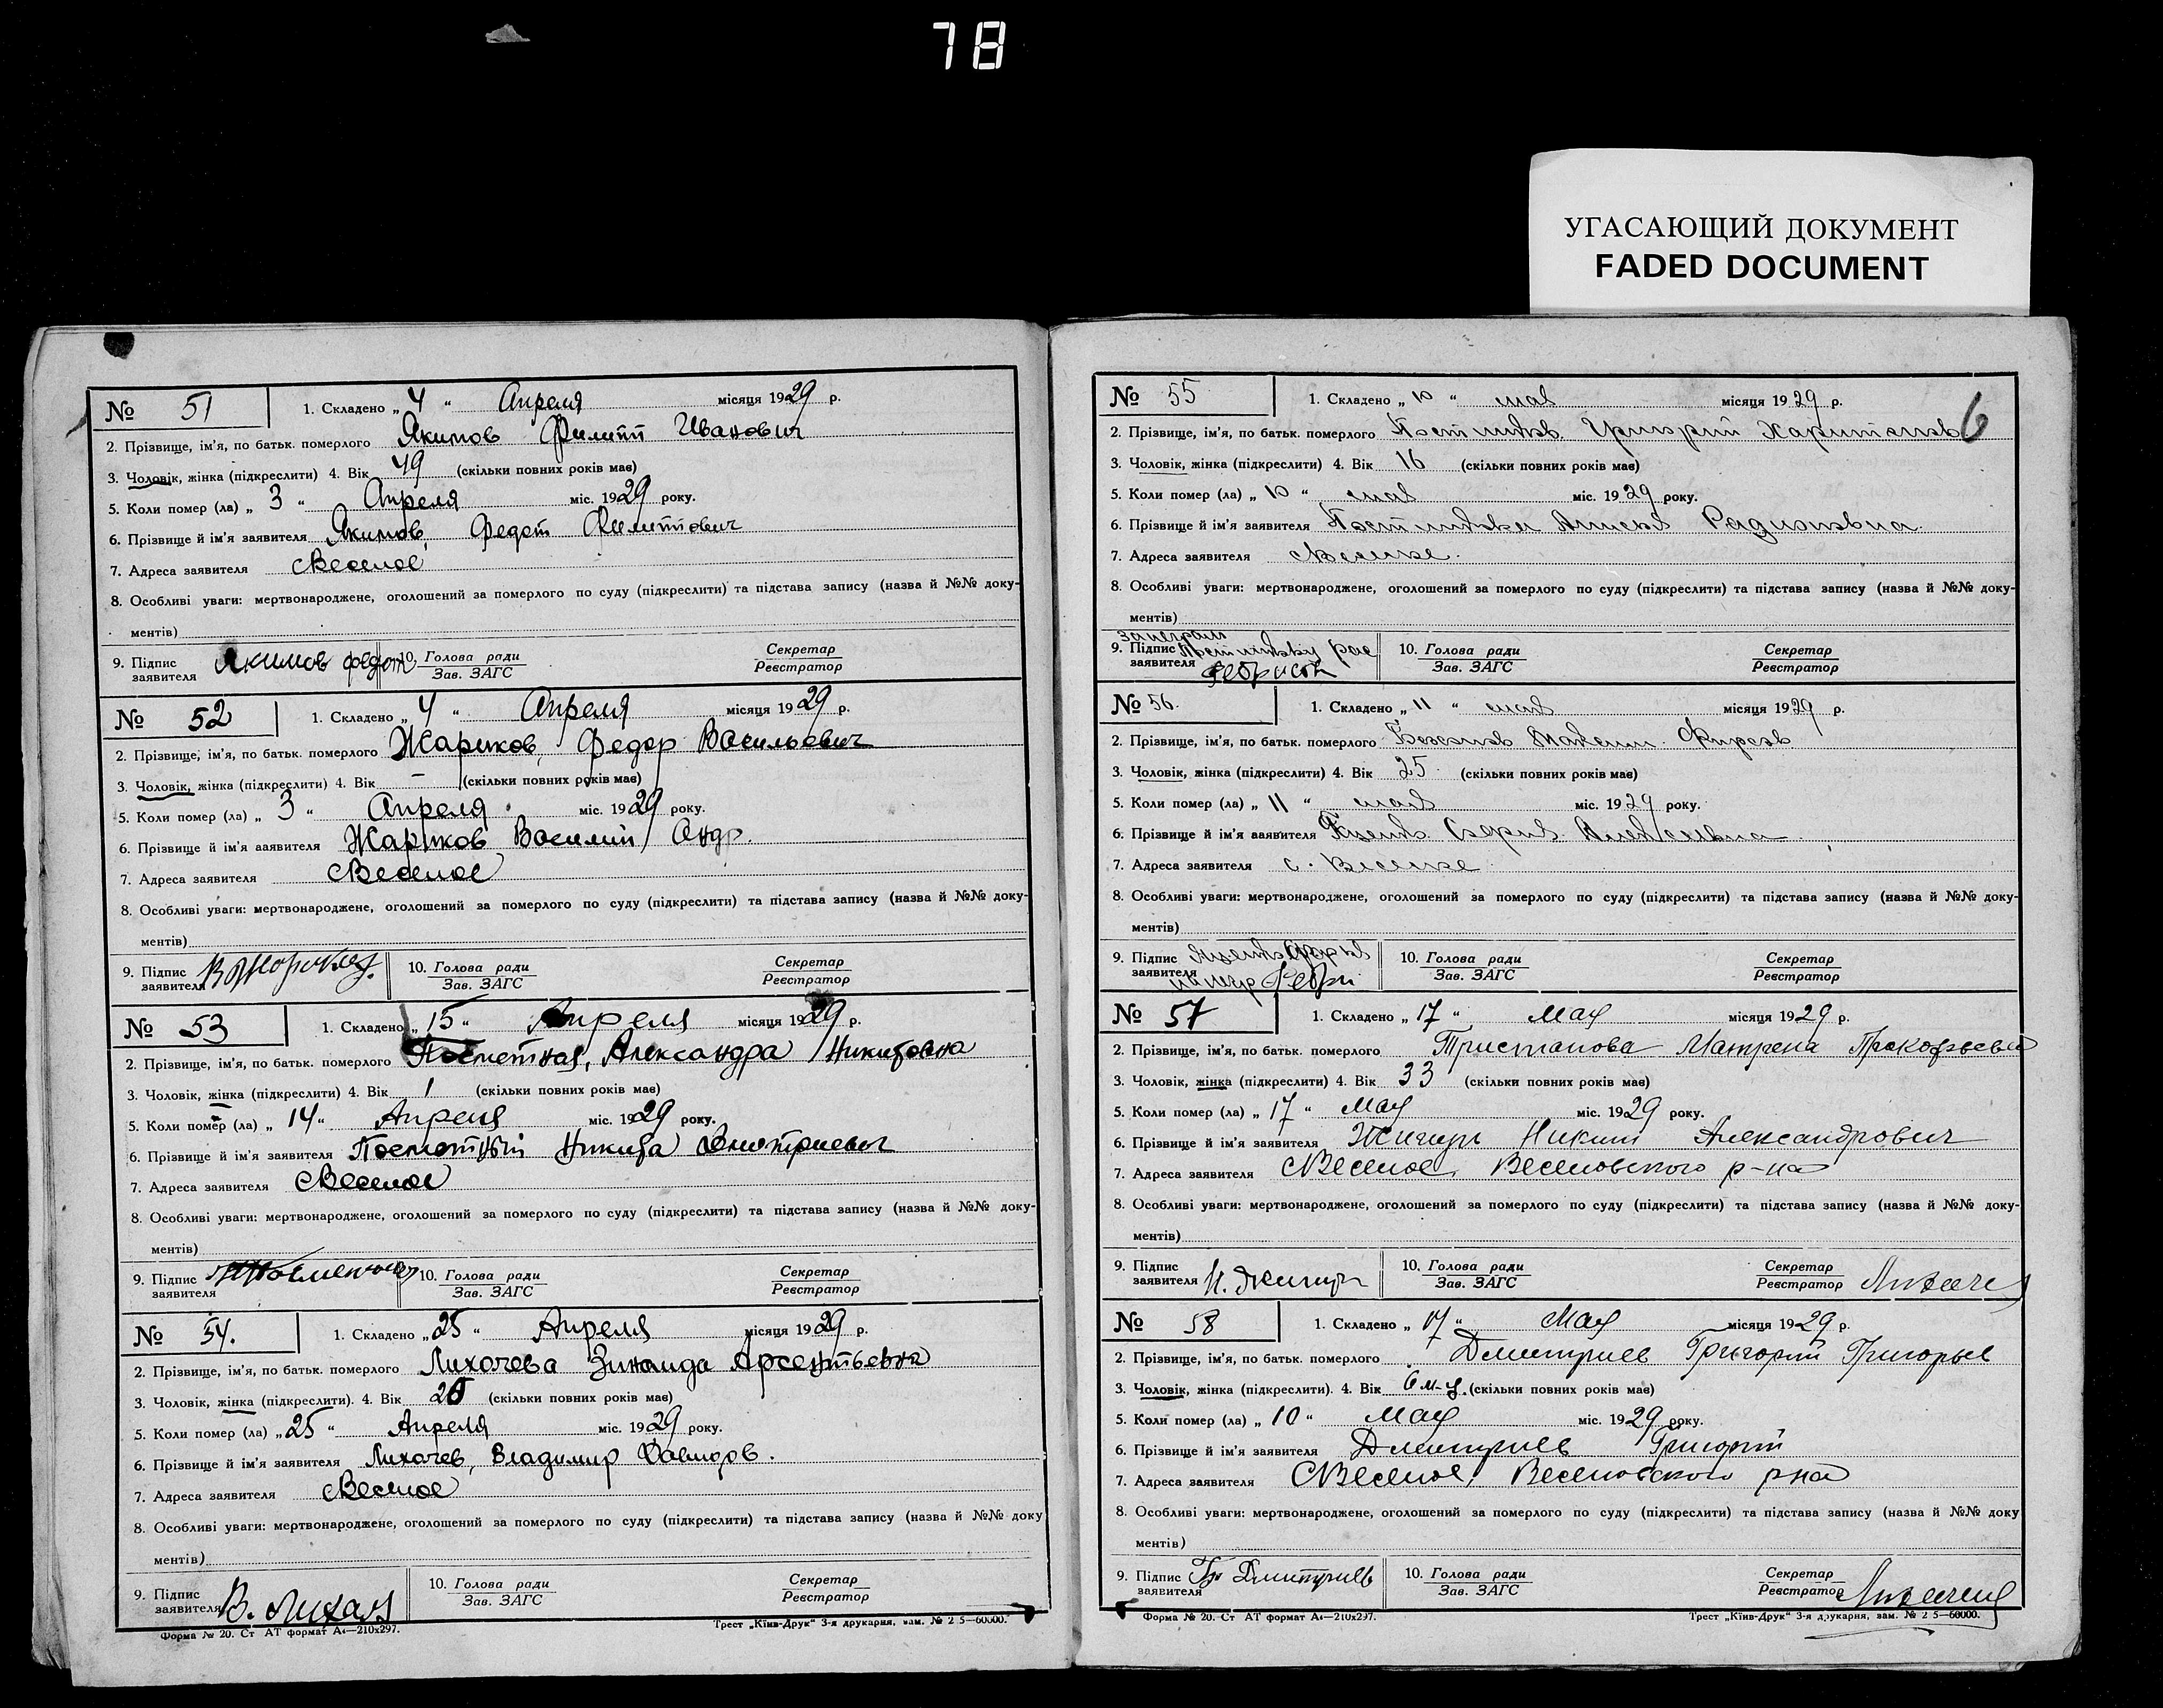 78
УГАСАЮЩИЙ ДОКУМЕНТ
FADED DOCUMENT
№ 51
1. Складено „ 4 “ Апреля місяця 1929 р.
2. Прізвище, ім'я, по батьк. померлого Якимов Филипп Иванович
3. Чоловік, жінка (підкреслити) 4. Вік 49 (скільки повних років має)
5. Коли помер (ла) „ 3 “ Апреля міс. 1929 року.
6. Прізвище й ім'я заявителя Якимов, Федот Филиппович
7. Адреса заявителя с Веселое
8. Особливі уваги: мертвонароджене, оголошений за померлого по суду (підкреслити) та підстава запису (назва й №№ доку-
ментів)
9. Підпис заявителя Якимов Федот 10. Голова ради Зав. ЗАГС Секретар Реєстратор
№ 52
1. Складено „ 4 “ Апреля місяця 1929 р.
2. Прізвище, ім'я, по батьк. померлого Жариков, Федор Васильевич
3. Чоловік, жінка (підкреслити) 4. Вік – (скільки повних років має)
5. Коли помер (ла) „ 3 “ Апреля міс. 1929 року.
6. Прізвище й ім'я заявителя Жариков Василий Андр.
7. Адреса заявителя с Веселое
8. Особливі уваги: мертвонароджене, оголошений за померлого по суду (підкреслити) та підстава запису (назва й №№ доку-
ментів)
9. Підпис заявителя 10. Голова ради Зав. ЗАГС Секретар Реєстратор
№ 53
1. Складено „ 15 “ Апреля місяця 1929 р.
2. Прізвище, ім'я, по батьк. померлого Посметная, Александра Никитовна
3. Чоловік, жінка (підкреслити) 4. Вік 1 (скільки повних років має)
5. Коли помер (ла) „ 14 “ Апреля міс. 1929 року.
6. Прізвище й ім'я заявителя Посметный Никита Дмитриевич
7. Адреса заявителя с Веселое
8. Особливі уваги: мертвонароджене, оголошений за померлого по суду (підкреслити) та підстава запису (назва й №№ доку-
ментів)
9. Підпис заявителя 10. Голова ради Зав. ЗАГС Секретар Реєстратор
№ 54.
1. Складено „ 25 “ Апреля місяця 1929 р.
2. Прізвище, ім'я, по батьк. померлого Лихачева Зинаида Арсентьевна
3. Чоловік, жінка (підкреслити). 4. Вік (скільки повних років має)
5. Коли помер (ла) „ 25 “ Апреля міс. 1929 року.
6. Прізвище й ім'я заявителя Лихачев, Владимир Давидов.
7. Адреса заявителя с Веселое
8. Особливі уваги: мертвонароджене, оголошений за померлого по суду (підкреслити) та підстава запису (назва й №№ доку
ментів)
9. Підпис заявителя В. Лихач 10. Голова ради Зав. ЗАГС Секретар Реєстратор
Форма № 20. Ст АТ формат А4—210x297. Трест „Київ-Друк“ 3-я друкарня, зам. № 2 5—60000.
6
№ 55
1. Складено „ 10 “ мая місяця 1929 р.
2. Прізвище, ім'я, по батьк. померлого Григорий
3. Чоловік, жінка (підкреслити) 4. Вік 16 (скільки повних років має)
5. Коли помер (ла) „ 10 “ мая міс. 1929 року.
6. Прізвище й ім'я заявителя Радионовна
7. Адреса заявителя
8. Особливі уваги: мертвонароджене, оголошений за померлого по суду (підкреслити) та підстава запису (назва й №№ доку-
ментів)
9. Підпис заявителя 10. Голова ради Зав. ЗАГС Секретар Реєстратор
№ 56.
1. Складено „ 11 “ мая місяця 1929 р.
2. Прізвище, ім'я, по батьк. померлого Максим Фирсов
3. Чоловік, жінка (підкреслити) 4. Вік 25 (скільки повних років має)
5. Коли помер (ла) „ 11 “ мая міс. 1929 року.
6. Прізвище й ім'я заявителя
7. Адреса заявителя с.
8. Особливі уваги: мертвонароджене, оголошений за померлого по суду (підкреслити) та підстава запису (назва й №№ доку-
ментів)
9. Підпис заявителя 10. Голова ради Зав. ЗАГС Секретар Реєстратор
№ 57
1. Складено „ 17 “ Мая місяця 1929 р.
2. Прізвище, ім'я, по батьк. померлого Тристанова Матрена Прокофьевна
3. Чоловік, жінка (підкреслити) 4. Вік 33 (скільки повних років має)
5. Коли помер (ла) „ 17 “ Мая міс. 1929 року.
6. Прізвище й ім'я заявителя Никит Александрович
7. Адреса заявителя с Веселое, Веселовского р-на
8. Особливі уваги: мертвонароджене, оголошений за померлого по суду (підкреслити) та підстава запису (назва й №№ доку-
ментів)
9. Підпис заявителя 10. Голова ради Зав. ЗАГС Секретар Реєстратор
№ 58
1. Складено „ 17 “ Мая місяця 1929 р.
2. Прізвище, ім'я, по батьк. померлого Дмитриев Григорий Григорьев
3. Чоловік, жінка (підкреслити). 4. Вік 6 м-ц. (скільки повних років має)
5. Коли помер (ла) „ 10 “ Мая міс. 1929 року.
6. Прізвище й ім'я заявителя Дмитриев Григорий
7. Адреса заявителя с Веселое, Веселовского рна
8. Особливі уваги: мертвонароджене, оголошений за померлого по суду (підкреслити) та підстава запису (назва й №№ доку
ментів)
9. Підпис заявителя Гр Дмитриев 10. Голова ради Зав. ЗАГС Секретар Реєстратор
Форма № 20. Ст АТ формат А4—210x297. Трест „Київ-Друк“ 3-я друкарня, зам. № 2 5—60000.